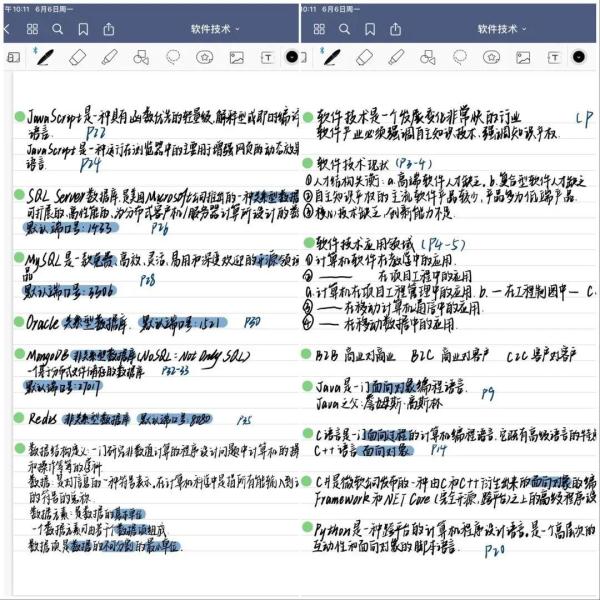 午10:11 6月6日周一
软件技术
JavaScript是一种具有函数优先的轻量级,解释型或即时编译
语言. P22
JavaScript是一种运行在浏览器中的主要用于增强网页的动态效果
语言. P24
SQL Server数据库,是美国Microsoft公司推出的一种关系型数据
可扩展的、高性能的、为分布式客户机/服务器计算所设计的数
默认端口号:1433 P26
MySQL是一款免费、高效、灵活、易用和深受欢迎的开源领
品
P28
默认端口号:3306
Oracle 关系型数据库. 默认端口号:1521 P30
MongoDB 非关系型数据库(NoSQL=Not Only SQL)
一个基于分布式文件储存的数据库 P32-33
默认端口号:27017
Redis 非关系型数据库 默认端口号:8080 P35
数据结构定义:一门研究非数值计算的程序设计问题中计算机的操
和操作等等的学科
数据:是对信息的一种符号表示,在计算机科学中是指所有能输入到
的符号的总称.
数据元素:是数据的基本单位
一个数据元素可由若干个数据项组成
数据项是数据的不可分割的最小单位.
10:11 6月6日周一
软件技术
软件技术是一个发展变化非常快的行业 LP
软件产业必须强调自主知识技术,强调知识产权.
软件技术现状 (P3-4)
①人才结构失衡:a.高端软件人才缺乏. b.复合型软件人才缺乏
②自主知识产权的主流软件产品较少,产品多为低端产品.
③核心技术缺乏,创新能力不足.
软件技术应用领域 (P4-5)
①计算机软件在教育中的应用.
② —— 在项目工程中的应用
a.计算机在项目工程管理中的应用. b. —在工程制图中— C.
③ —— 在移动计算机通信中的应用.
④ —— 在移动数据中的应用.
B2B 商业对商业 B2C 商业对客户 C2C 客户对客户
Java是一门面向对象编程语言.
P9
Java之父:詹姆斯·高斯林
C语言是一门面向过程的计算机编程语言,它既有高级语言的特
C++语言 面向对象 P14
C#是微软公司发布的一种由C和C++衍生出来的面向对象的编
Framework和.NET Core(完全开源,跨平台)之上的高级程序设
Python是一种跨平台的计算机程序设计语言.是一个高层次的
互动性和面向对象的脚本语言.
P20